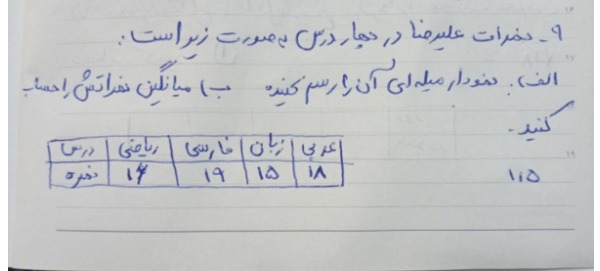 ۹- نمرات علیرضا در چهار درس به صورت زیر است:
الف) نمودار میله ای آن را رسم کنید ب) میانگین نمراتش را حساب
کنید.
درس ریاضی فارسی زبان عربی
نمره ۱۴ ۱۹ ۱۵ ۱۸
۱،۵